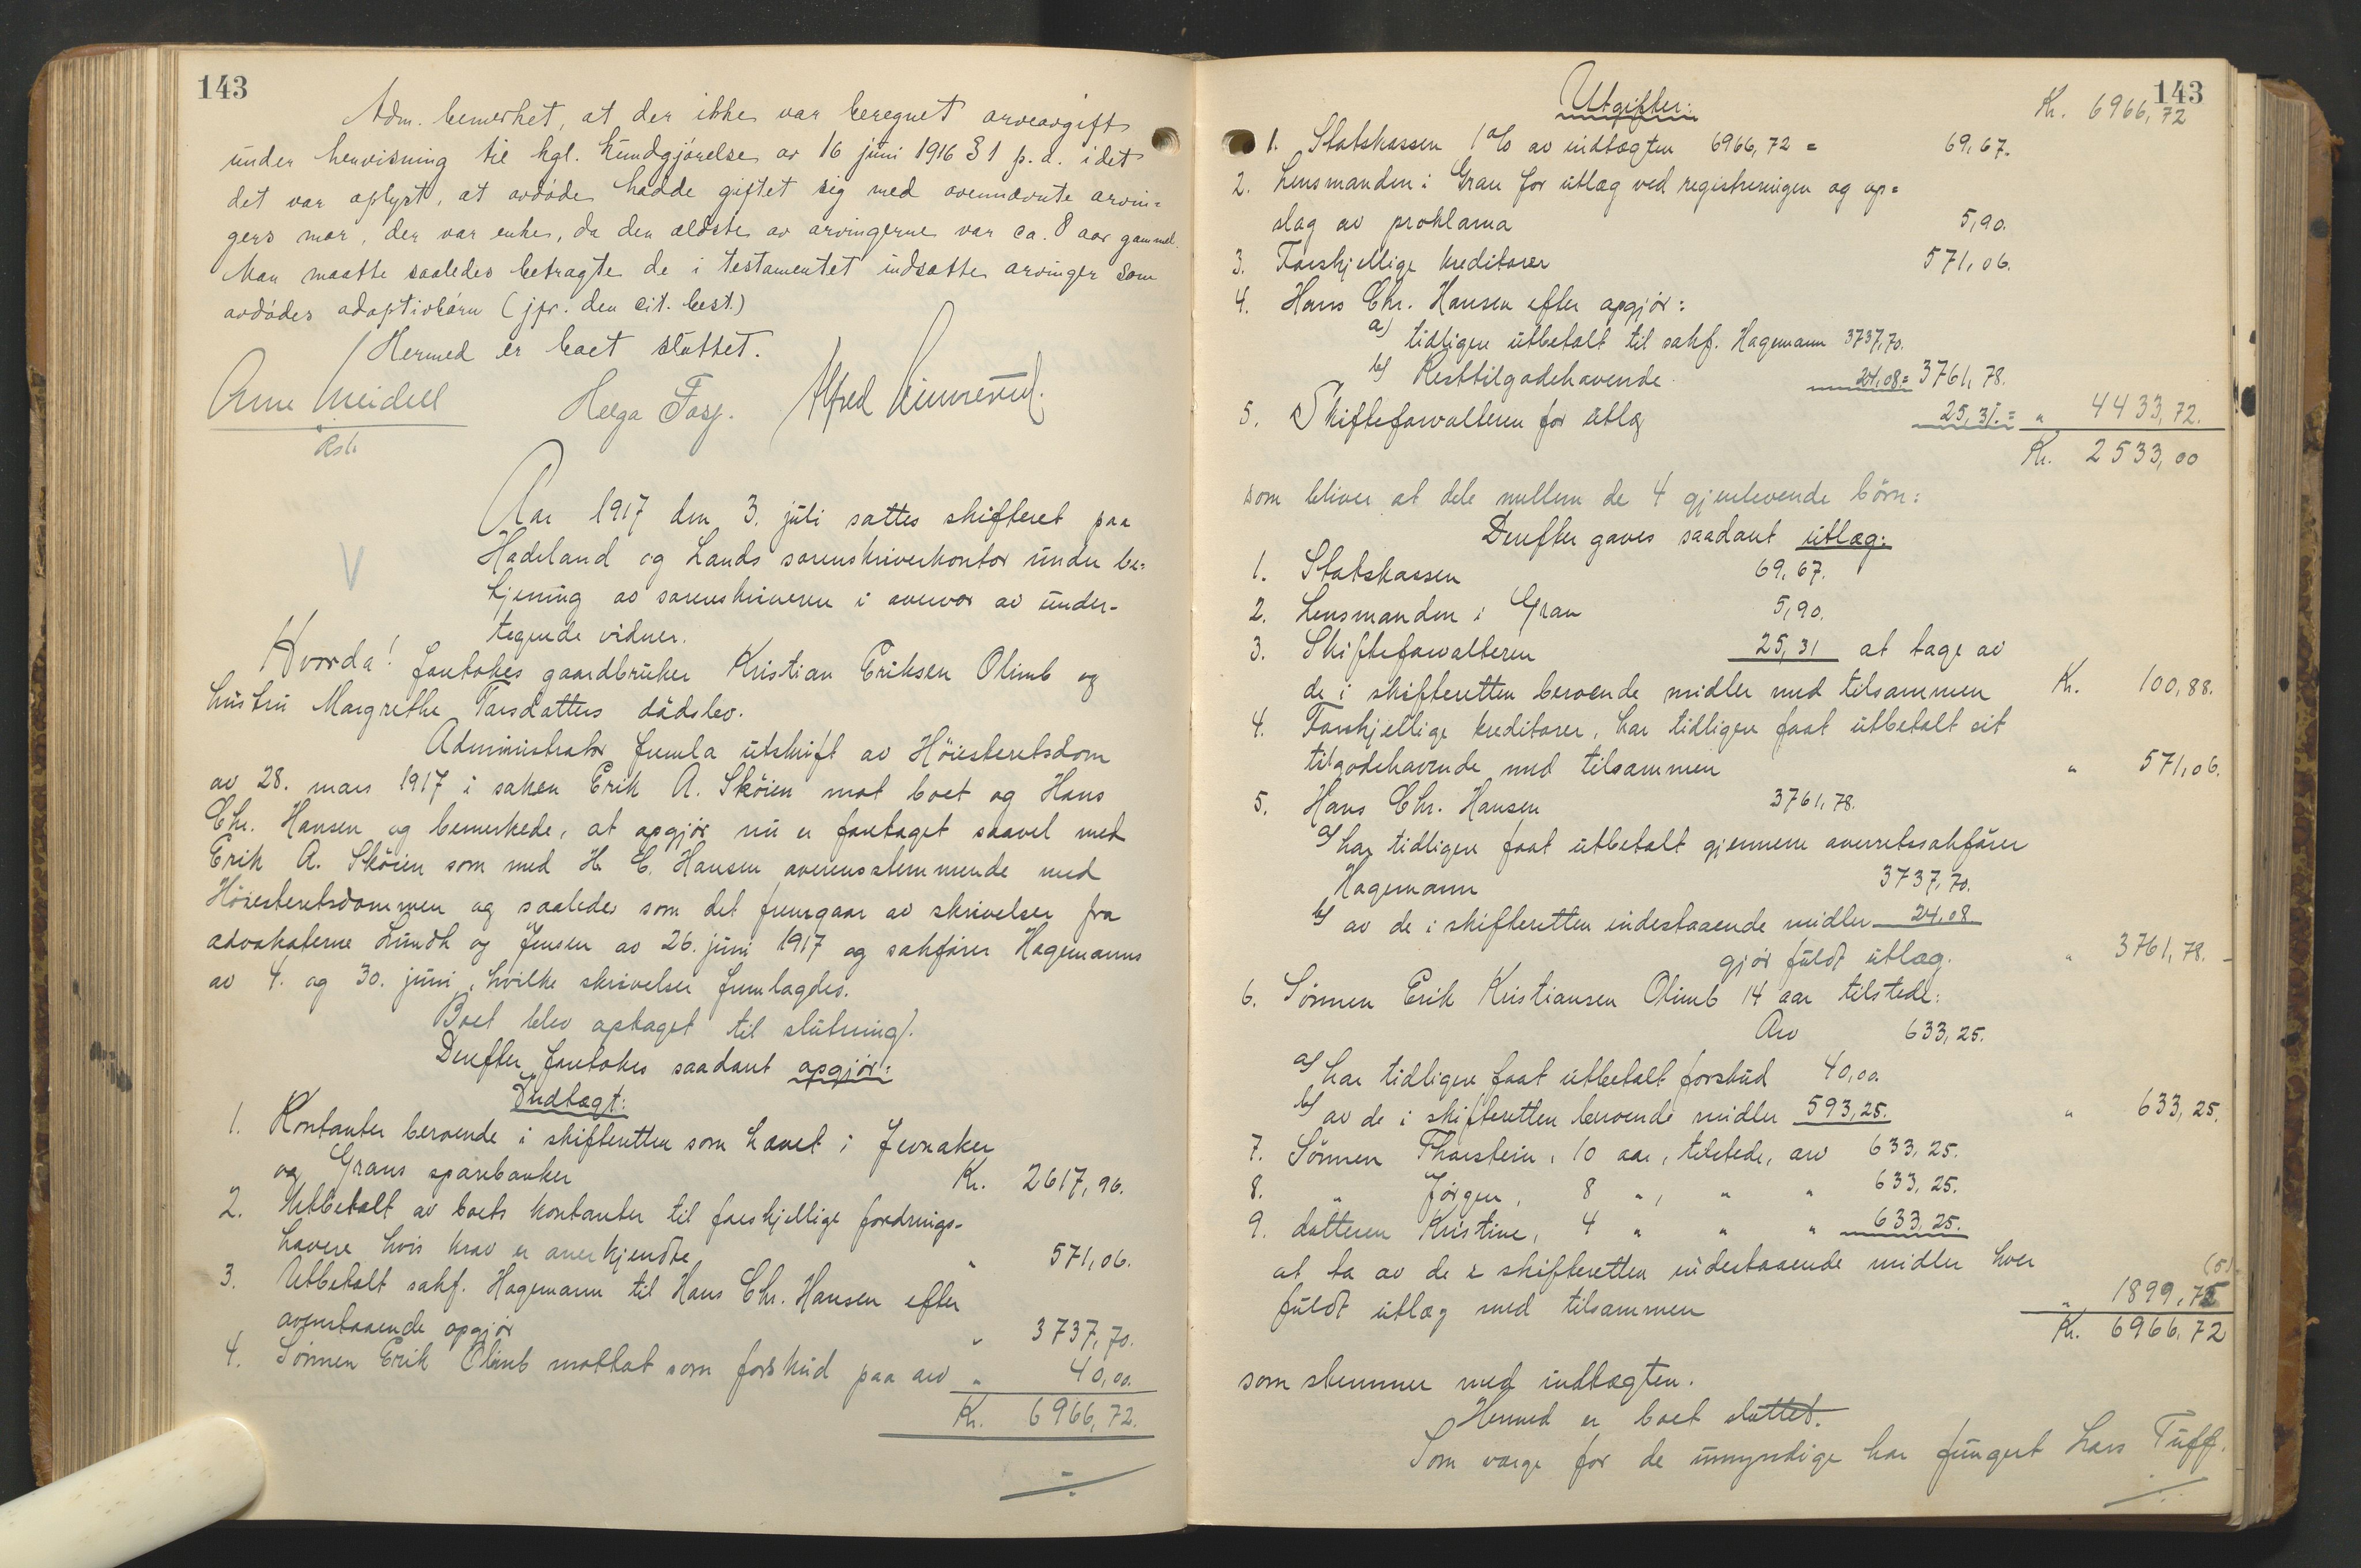 143
Adm. bemerket, at der ikke var beregnet arveavgift
under henvisning til kgl. kundgjörelse av 16 juni 1916 § 1 p. d. idet
det var oplyst, at avdöde hadde giftet sig med ovennævnte arvin=
gers mor, der var enke, da den ældste av arvingerne var ca. 8 aar gammel.
Man maatte saaledes betragte de i testamentet indsatte arvinger som
avdödes adoptivbörn (jfr. den cit. best.)
Hermed er boet sluttet.
Arne Meidell Helga Alfred
Aar 1917 den 3. juli sattes skifteret paa
Hadeland og Lands sorenskriverkontor under be=
tjening av sorenskriveren i overvær av under-
tegnede vidner.
Hvorda! foretokes gaardbruker Kristian Eriksen Olimb og
hustru Margrethe Larsdatters dödsbo.
Administrator fremla utskrift av Höiesteretsdom
av 28. mars 1917 i saken Erik A. Sköien mot boet og Hans
Chr. Hansen og bemerkede, at opgjör nu er foretaget saavel med
Erik A. Sköien som med H. C. Hansen overensstemmende med
Höiesteretsdommen og saaledes som det fremgaar av skrivelser fra
advokaterne Lundh og Jensen av 26. juni 1917 og sakförer Hagemanns
av 4. og 30. juni, hvilke skrivelser fremlagdes.
Boet blev optaget til slutning.
Derefter foretokes saadant opgjör:
Indtægt:
1. Kontanter beroende i skifteretten som hævet i Jevnaker
og Grans sparebanker Kr. 2617,96.
2. Utbetalt av boets kontanter til forskjellige fordrings-
havere hvis krav er anerkjendte " 571,06.
3. Utbetalt sakf. Hagemann til Hans Chr. Hansen efter
ovenstaaende opgjör " 3737,70.
4. Sönnen Erik Olimb mottat som forskud paa arv " 40,00.
Kr. 6966,72.
143
Utgifter: Kr. 6966,72
1. Statskassen 1 % av indtægten 6966,72 = 69,67.
2. Lensmanden i Gran for utlæg ved registreringen og op=
slag av proklama 5,90.
3. Forskjellige kreditorer 571,06.
4. Hans Chr. Hansen efter opgjör:
a) tidligere utbetalt til sakf. Hagemann 3737,70.
b) Resttilgodehavende 24,08 = 3761,78.
5. Skifteforvalteren for utlæg 25,31. = " 4433,72.
Kr. 2533,00
som bliver at dele mellem de 4 gjenlevende börn:
Derefter gaves saadant utlæg:
1. Statskassen 69,67.
2. Lensmanden i Gran 5,90.
3. Skifteforvalteren 25,31 at tage av
de i skifteretten beroende midler med tilsammen Kr. 100,88.
4. Forskjellige kreditorer, har tidligere faat utbetalt sit
tilgodehavende med tilsammen " 571,06.
5. Hans Chr. Hansen 3761,78.
a) har tidligere faat utbetalt gjennem overretssakförer
Hagemann 3737,70.
b) av de i skifteretten indestaaende midler 24,08
gjör fuldt utlæg. " 3761,78.
6. Sönnen Erik Kristiansen Olimb 14 aar tilstede:
Arv 633,25.
a) har tidligere faat utbetalt forskud 40,00.
b) av de i skifteretten beroende midler 593,25. " 633,25.
7. Sönnen Thorstein, 10 aar, tilstede, arv 633,25.
8. " Jörgen, 8 ", " " 633,25.
9. datteren Kristine, 4 " " " 633,25.
at ta av de i skifteretten indestaaende midler hver (5)
fuldt utlæg med tilsammen " 1899,75
Kr. 6966,72
som stemmer med indtægten.
Hermed er boet sluttet.
Som værge for de umyndige har fungert Lars Tuff.